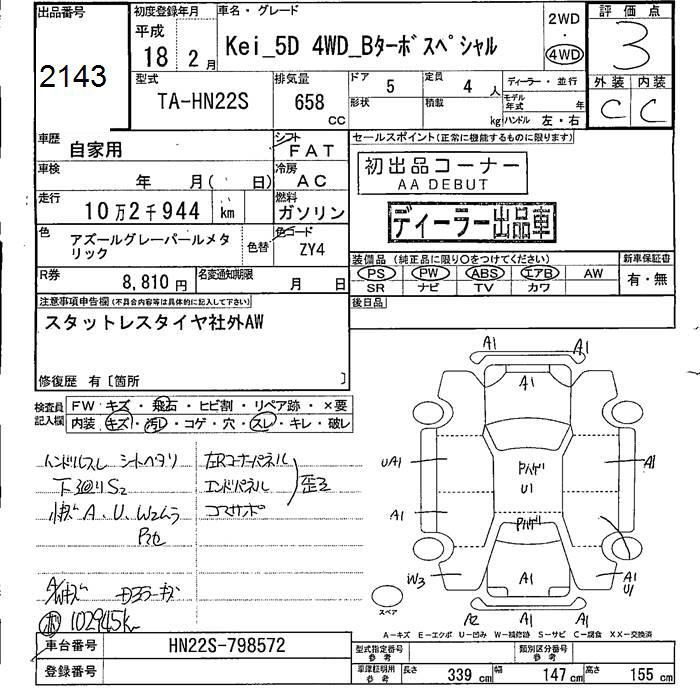 出品番号
2143
初度登録年月
平成
18 2 月
車名・グレード
Kei_5D 4WD_Bターボスペシャル
2WD
・
4WD
評価点
3
外装 内装
C C
型式
TA-HN22S
排気量
658
CC
ドア
5
定員
4 人
形状
積載
kg
ディーラー・並行
モデル年式 年
ハンドル 左・右
車歴
自家用
シフト
FAT
車検
年 月( 日)
冷房
AC
走行
10万2千944 km
燃料
ガソリン
色
アズールグレーパールメタリック
色替
色コード
ZY4
R券
8,810 円
名変通知期限
月 日
セールスポイント(正常に機能するものに限ります)
初出品コーナー
AA DEBUT
ディーラー出品車
装備品(純正品に限り○をつけてください)
PS PW ABS エアB AW
SR ナビ TV カワ
新車保証書
有・無
後日品
注意事項申告欄(不具合内容等は具体的に記入して下さい)
スタットレスタイヤ社外AW
修復歴 有〔箇所 〕
検査員記入欄
FW キズ・飛石・ヒビ割・リペア跡・×要
内装 キズ・汚レ・コゲ・穴・スレ・キレ・破レ
ハンドルスレ シートヘタリ
下廻りS2
A、U、W2ムラ
左Rコーナーパネル
エンドパネル
コアサポ
歪ミ
102945km
A1
A1 A1
A1
UA1
A1
A1
U1
W3
A1
A1
U1
A2 A1 A1
スペア
A-キズ E-エクボ U-凹み W-補修跡 S-サビ C-腐食 XX-交換済
車台番号
HN22S-798572
登録番号
型式指定番号
参考
類別区分番号
参考
車庫証明用
参考
長さ 339 cm
幅 147 cm
高さ 155 cm